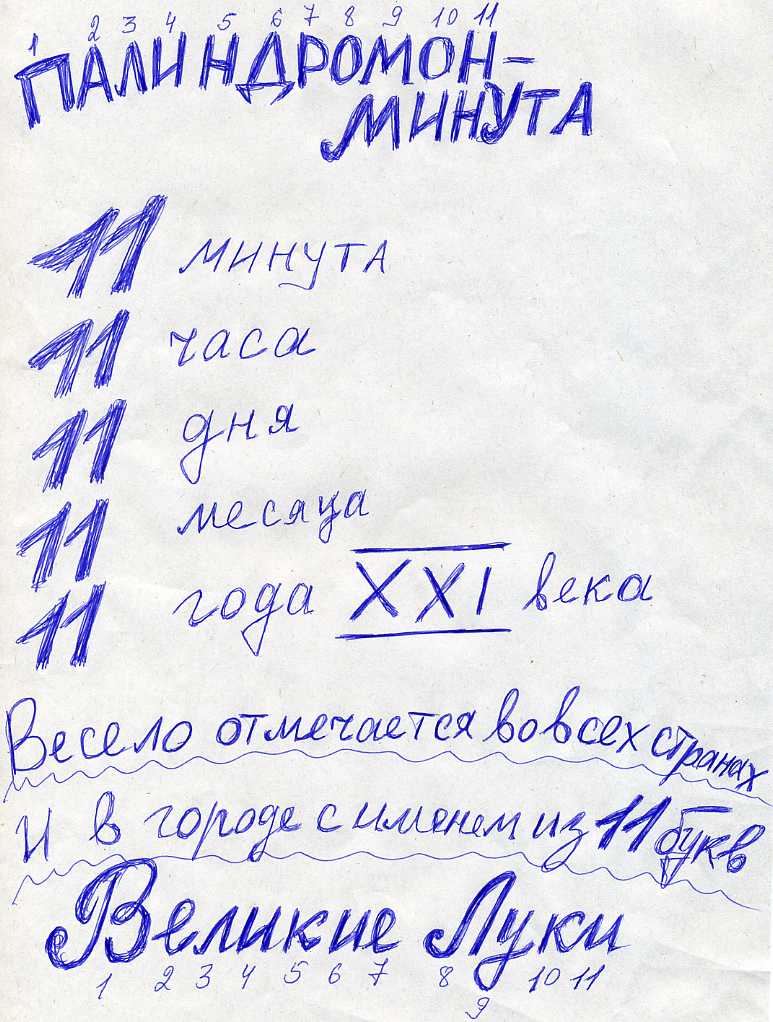 1 2 3 4 5 6 7 8 9 10 11
ПАЛИНДРОМОН-
МИНУТА
11 минута
11 часа
11 дня
11 месяца
11 года XXI века
Весело отмечается во всех странах
И в городе с именем из 11 букв
Великие Луки
1 2 3 4 5 6 7 8 9 10 11